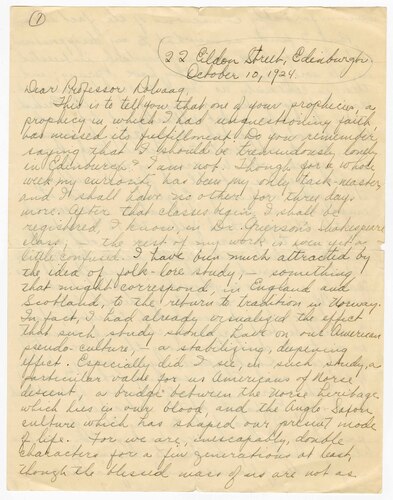 ①
22 Eldon Street, Edinburgh.
October 10, 1924.
Dear Professor Rolvaag,
This is to tell you that one of your prophecies, a
prophecy in which I had unquestioning faith
has missed its fulfillment. Do you remember
saying that I should be tremendously lonely
in Edinburgh? I am not. Though for a whole
week my curiosity has been my only task-master,
and I shall have no other for three days
more. After that classes begin, I shall be
registered, I know, in Dr. Grierson's Shakespeare
class, — the rest of my work is even yet a
little confused. I have been much attracted by
the idea of folk-lore study, — something
that might correspond, in England and
Scotland, to the return to tradition in Norway.
In fact, I had already visualized the effect
that such study should have on our American
pseudo-culture, — a stabilizing, deepening
effect. Especially did I see, in such study, a
particular value for us Americans of Norse
descent, a bridge between the Norse heritage
which lies in our blood, and the Anglo Saxon
culture which has shaped our present mode
of life. For we are, inescapably, double
characters for a few generations at least,
though the blessed mass of us are not as